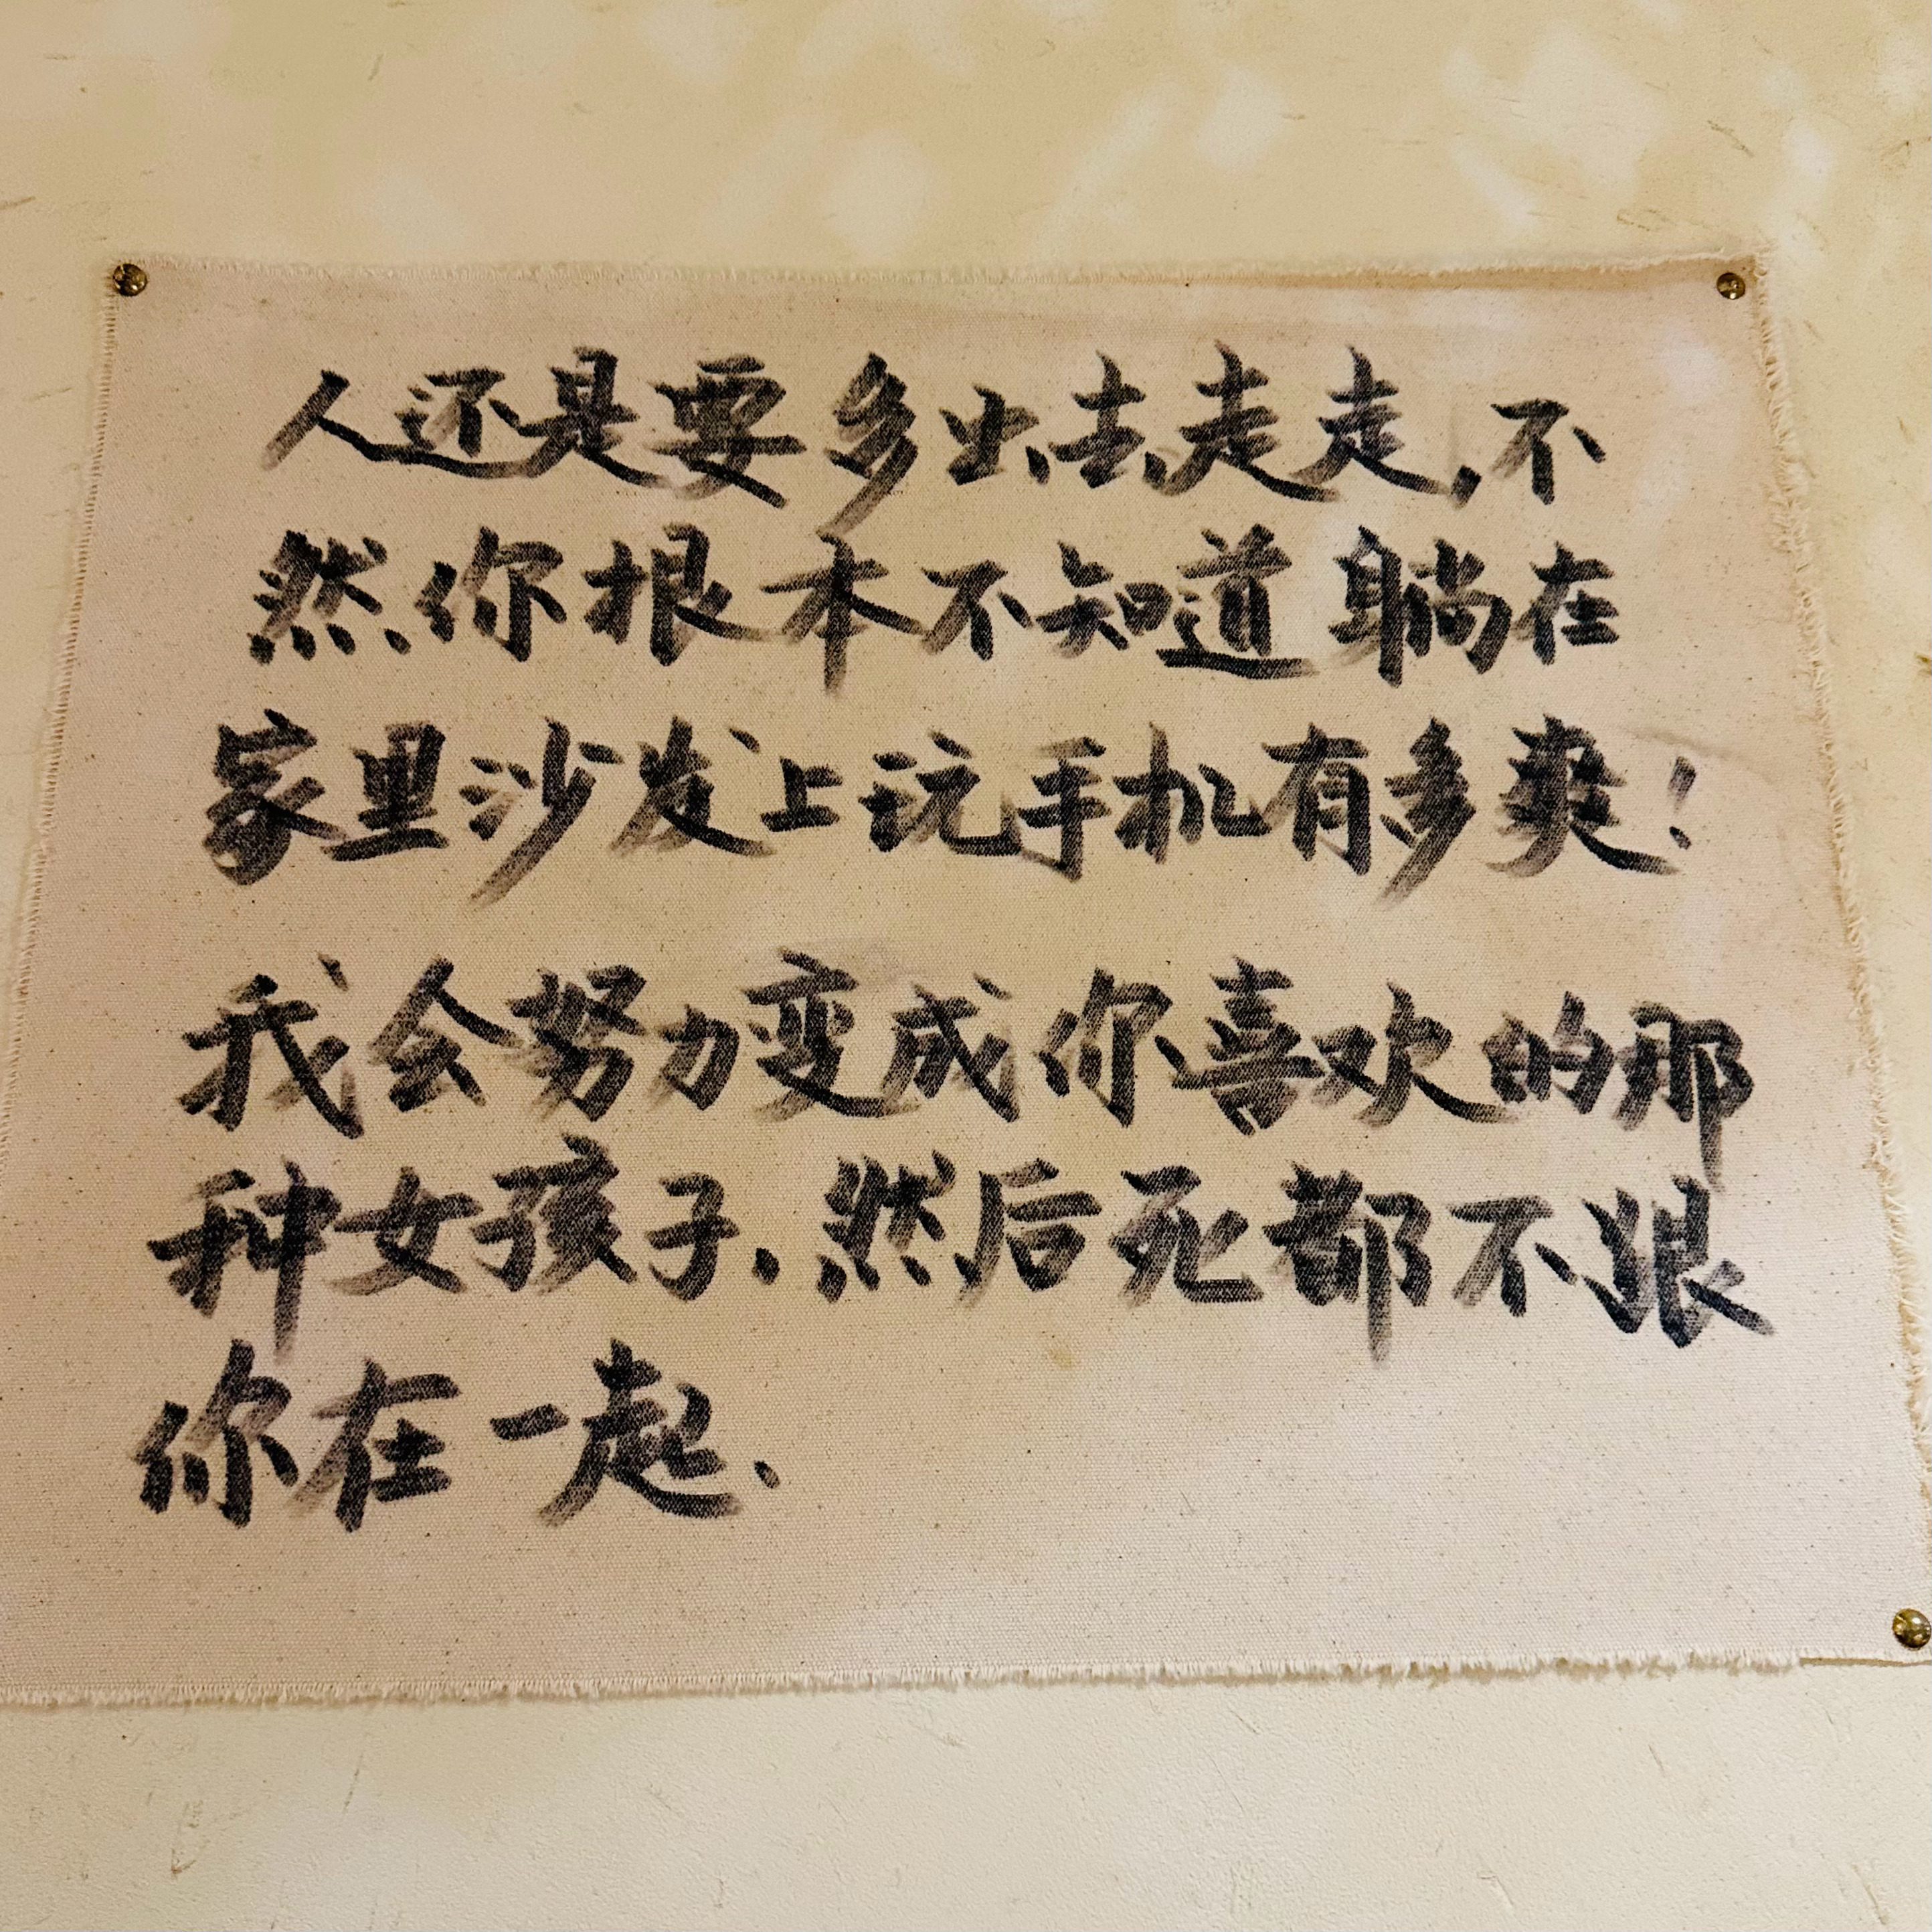 人还是要多出去走走,不
然你根本不知道躺在
家里沙发上玩手机有多爽!
我会努力变成你喜欢的那
种女孩子.然后死都不跟
你在一起.